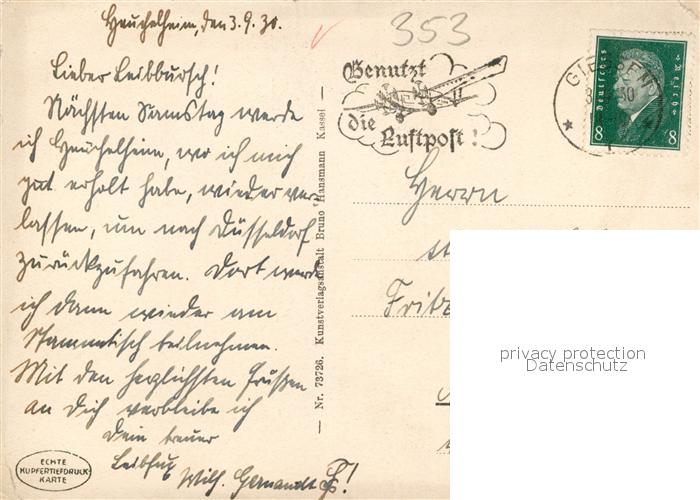 Heuchelheim, den 3.9.30.
Lieber Leibbursch!
Nächsten Samstag werde
ich Heuchelheim, wo ich mich
gut erholt habe, wieder ver-
lassen, um nach Düsseldorf
zurückzufahren. Dort werde
ich dann wieder am
Stammtisch teilnehmen.
Mit den herzlichsten Grüßen
an Dich verbleibe ich
Dein treuer
Leibfux Wilh. Gernandt
ECHTE
KUPFERTIEFDRUCK-
KARTE
Nr. 73726. Kunstverlagsanstalt Bruno Hansmann Kassel
353
Benutzt
die
Luftpost!
GIESSEN
Deutsches Reich
8 8
Herrn
Fritz
privacy protection
Datenschutz